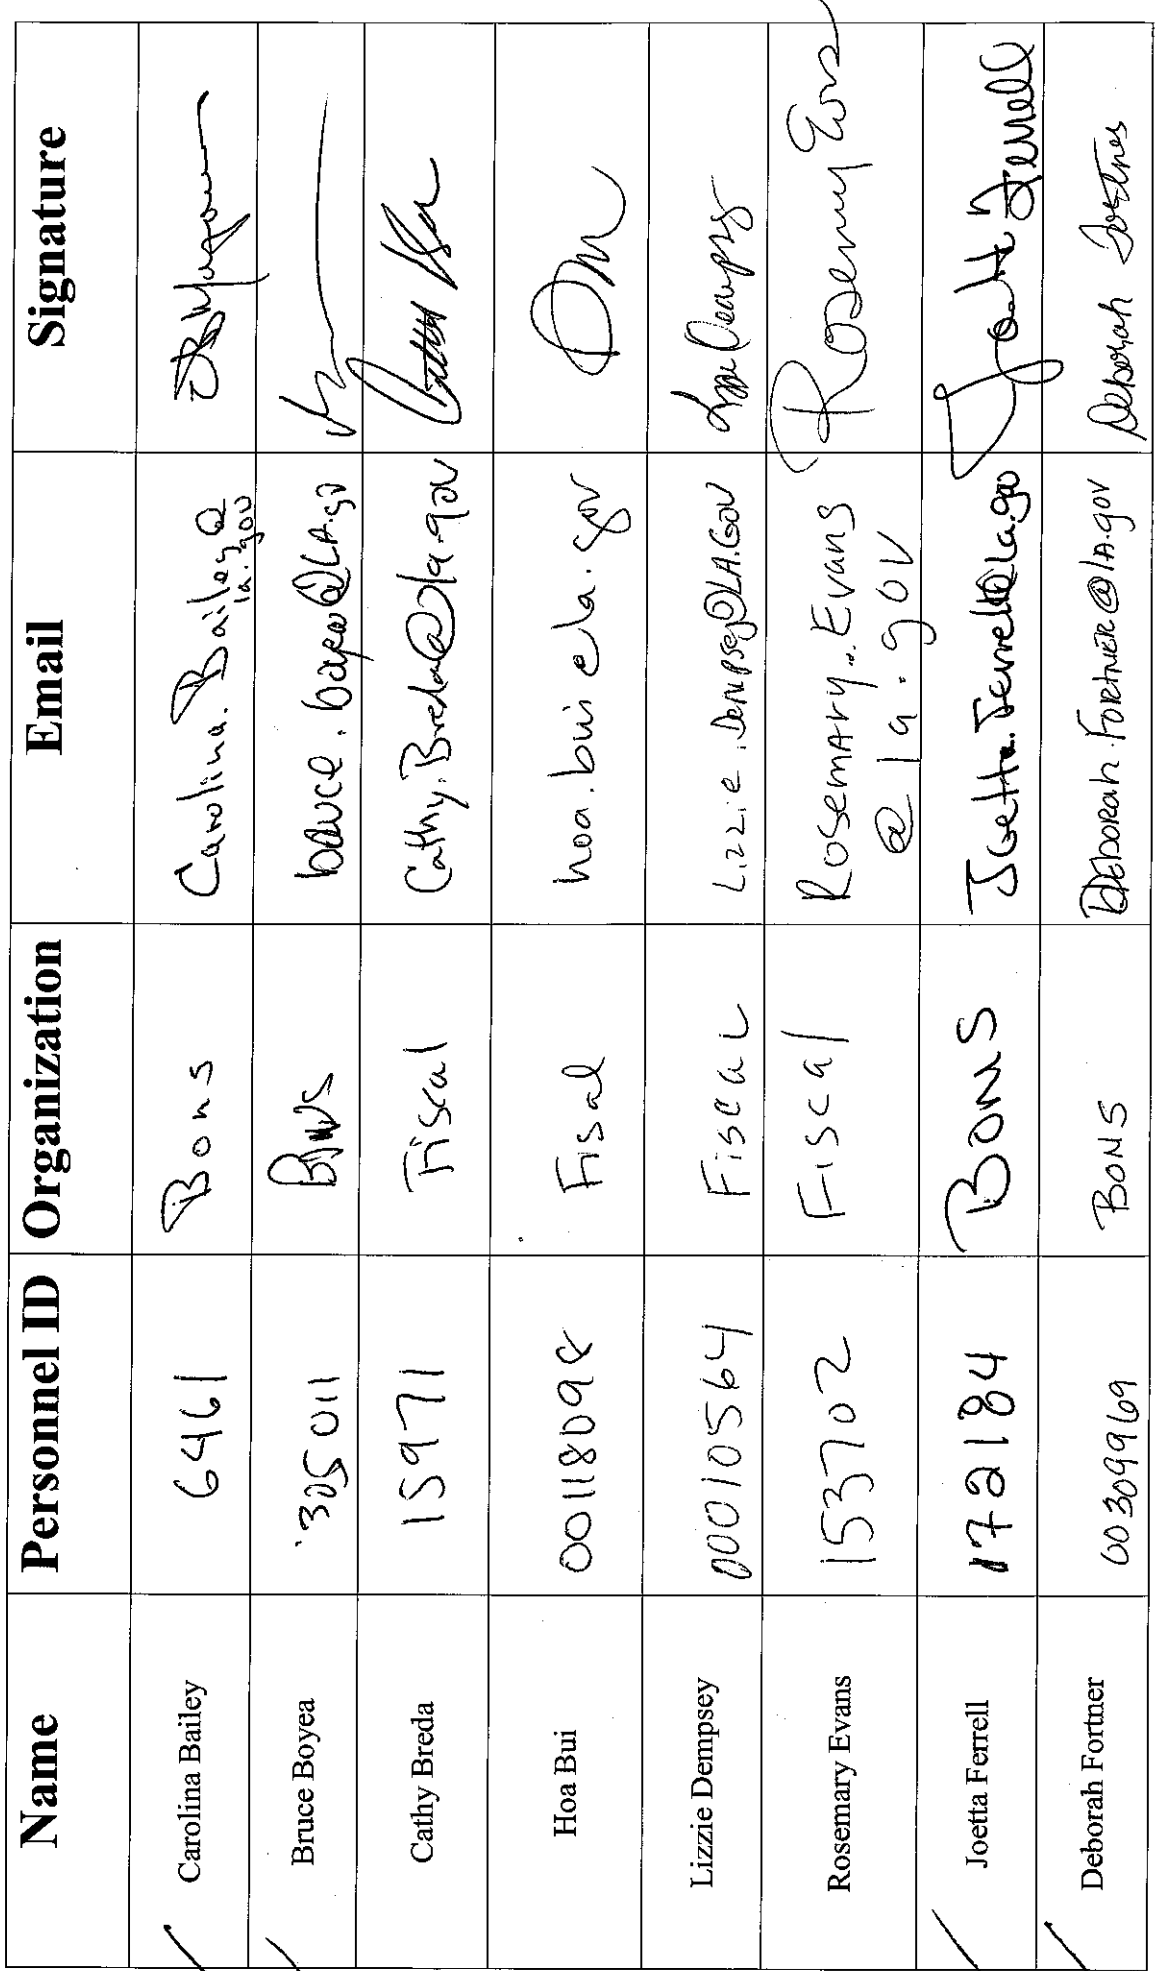 Name Personnel ID Organization Email Signature
Carolina Bailey 6461 Bons Carolina.Bailey@
la.gov
Bruce Boyea 305011 BONS bruce.boyea@LA.gov
Cathy Breda 15971 Fiscal Cathy.Breda@la.gov
Hoa Bui 00118098 Fisal hoa.bui@la.gov
Lizzie Dempsey 00010564 Fiscal Lizzie.Dempsey@LA.GOV Lizzie Dempsey
Rosemary Evans 153702 Fiscal Rosemary.Evans Rosemary Evans
@la.gov
Joetta Ferrell 172184 BONS Joetta.Ferrell@la.gov Joetta Ferrell
Deborah Fortner 00309969 BONS DEBORah.FORTNER@LA.gov Deborah Fortner